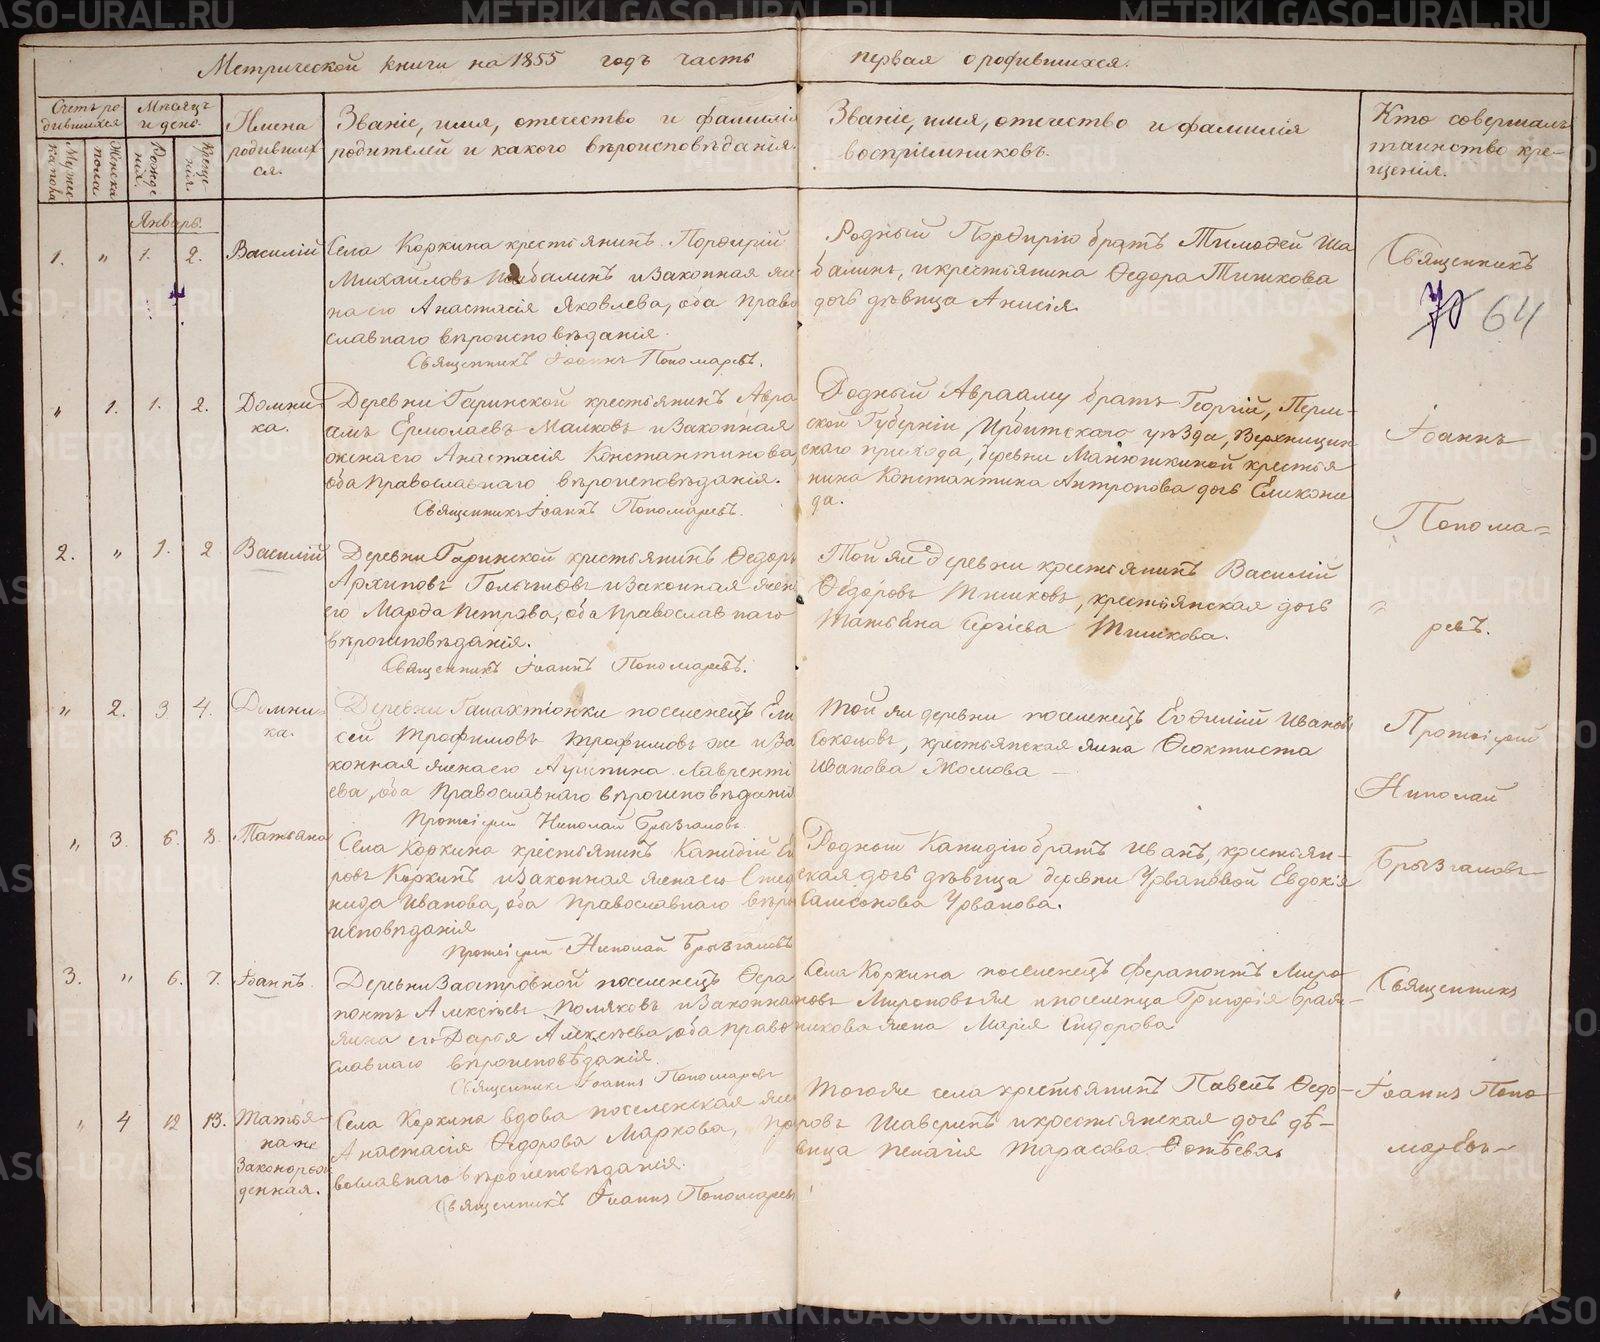 Метрической книги на 1855 годъ часть первая о родившихся.
Счетъ ро-
дившихся
Мѣсяцъ
и день.
Имена
родивших
ся.
Званіе, имя, отечество и фамилія
родителей и какого вѣроисповѣданія.
Званіе, имя, отечество и фамилія
воспріемниковъ.
Кто совершалъ
таинство кре-
щенія.
Муже
ка пола
Женска
пола
Рожде
нія.
Креще
нія.
Январь.
1. " 1. 2. Василій
Села Коркина крестьянинъ Порфирій
Михайловъ Шабалинъ и законная же
на его Анастасія Яковлева, оба право
славнаго вѣроисповѣданія.
Священникъ Іоаннъ Пономаревъ.
Родный Порфирію братъ Тимофей Ша
балинъ, и крестьянина Ѳедора Тишкова
дочь дѣвица Анисія.
Священникъ
70 64
" 1. 1. 2. Домни-
ка.
Деревни Гаринской крестьянинъ Авра
амъ Ермолаевъ Малковъ и законная
жена его Анастасія Константинова,
оба православнаго вѣроисповѣданія.
Священникъ Іоаннъ Пономаревъ.
Родный Аврааму братъ Георгій, Перм-
ской Губерніи, Ирбитскаго уѣзда,
скаго прихода, деревни Манюшкиной крестья
нина Константина Антропова дочь
да.
Іоаннъ
Понома=
2. " 1. 2 Василій
Деревни Гаринской крестьянинъ Ѳедоръ
Архиповъ и законная жена
его Марѳа Петрова, оба православнаго
вѣроисповѣданія.
Священникъ Іоаннъ Пономаревъ.
Той же деревни крестьянинъ Василій
Ѳедоровъ Тишковъ, крестьянская дочь
Татьяна Сергіева Тишкова.
ревъ.
" 2. 3 4. Домни-
ка.
Деревни поселенецъ Ели
сей Трофимовъ Трофимовъ же и за
конная жена его Агрипина Лаврентi
ева, оба православнаго вѣроисповѣданія
Протоіерей Николай Брызгаловъ
Той же деревни поселенецъ Евфимій Ивановъ
Соколовъ, крестьянская жена Ѳеоктиста
Иванова
Протоіерей
Николай
" 3. 6. 8. Татьяна
Села Коркина крестьянинъ
ровъ Коркинъ и законная жена его Степа
нида Иванова, оба православнаго вѣро
исповѣданія
Протоіерей Николай Брызгаловъ
Родный братъ Иванъ, крестьян-
ская дочь дѣвица деревни Урвановой Евдокія
Самсонова Урванова.
Брызгаловъ
3. " 6. 7. Іоаннъ.
Деревни Заостровной поселенецъ Ѳера
понтъ Алексѣевъ Поляковъ и законная
жена его Дарья Алексѣева, оба право
славнаго вѣроисповѣданія.
Священникъ Іоаннъ Пономаревъ
Села Коркина поселенецъ Ферапонтъ Миро
новъ Мироновъ же и поселенца Григорія Браж-
никова жена Марія Сидорова
Священникъ
" 4 12 13. Татья-
на не
законорож
денная.
Села Коркина вдова поселенская жена
Анастасія Ѳедорова Маркова, пра
вославнаго вѣроисповѣданія.
Священникъ Іоаннъ Пономаревъ
Того же села крестьянинъ Павелъ Ѳедо-
ровъ Шаверинъ и крестьянская дочь дѣ-
вица Пелагія Тарасова Фотѣева.
Іоаннъ Поно
маревъ